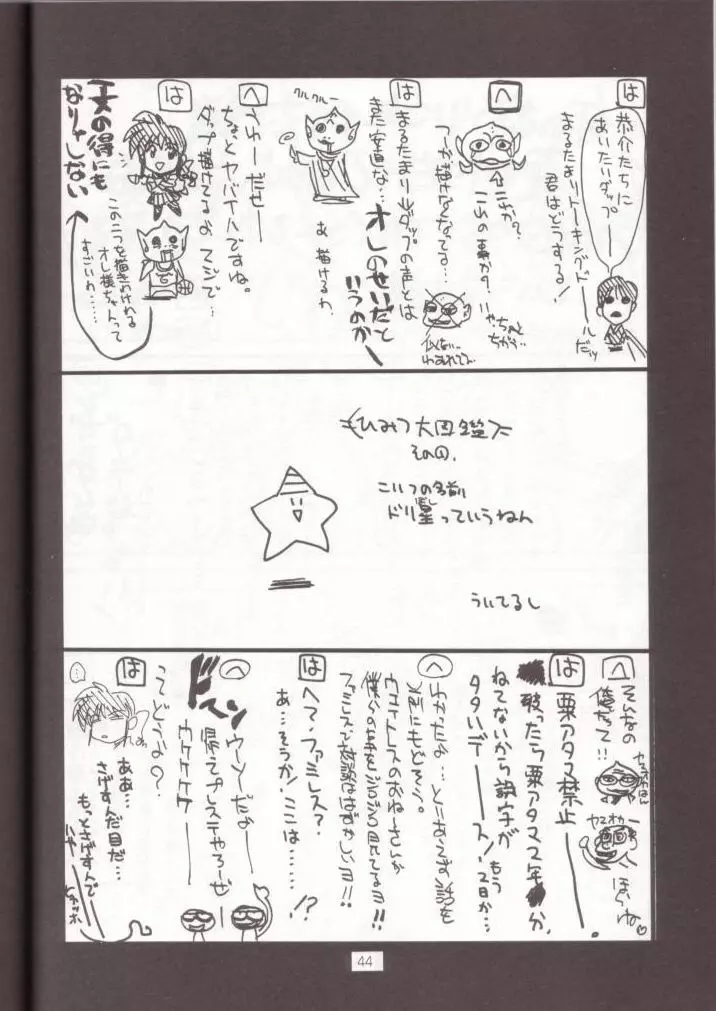 は
恭介たちに
あいたいダップ
まるたまりトーキングド
ールだッ
君はどうする!
へ
これか?
これの事か?
いや、ちゃんと
ちがく…
つーか描けなくなってる…
似ない…
は
まるたまりゃダップの声とは
また安直な…
オレのせいだと
いうのかー
あ 描けるわ
クルクルー
へ
うわーだぜー
ちょっとヤバイハですね。
ダップ描けてるよ マジで…
は
この二つを描きわけれる
オレ様ちゃんって
すごいわ……
一文の得にも
なりゃしない
ひみつ大図鑑
その1.
こいつの名前
ドリ星っていうねん
ぼし
ういてるし
へ
そんなの
俺だって!!
ヤマオカー
ほらね
は
粟アタマ禁止ー
破ったら粟アタマ2年か
ねてないから誤字が
もう2日か…
タタいデース!
へ
わかったよ…とりあえず話を
元にもどそう。
ウェイトレスのおねーさんが
僕らの事をジロジロ見てるヨ!!
ファミレスで対談ははずかしいヨ!!
は
へて、ファミレス?
あ…そうか!ここは……
!?
へ
ドスーン
ウーソだよー
帰ってプレステやろーぜ
ウケケケケー
は
ってどうよ?
ああ…
さげすんだ目だ…
もっとさげすんで
…
44